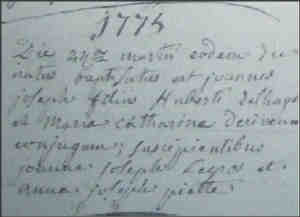 1774
Die 24ta martii eodem die
natus baptisatus est joannes
joseph filius Huberti delhaye
et Maria Catharina
conjugum; suscipientibus
joanne joseph Legros et
anna joseph piette